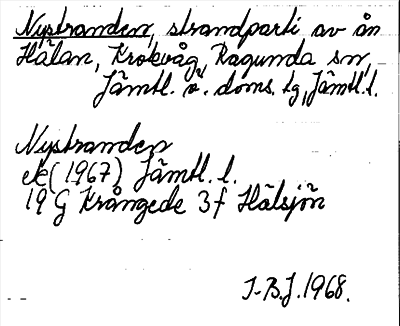 Nystranden, strandparti av ån
Hälan, Krokvåg, Ragunda sn,
Jämtl. ö. doms. tg, Jämtl. l.
Nystranden
ek (1967) Jämtl. l.
19 G Krångede 3f Hälsjön
I-B.J. 1968.